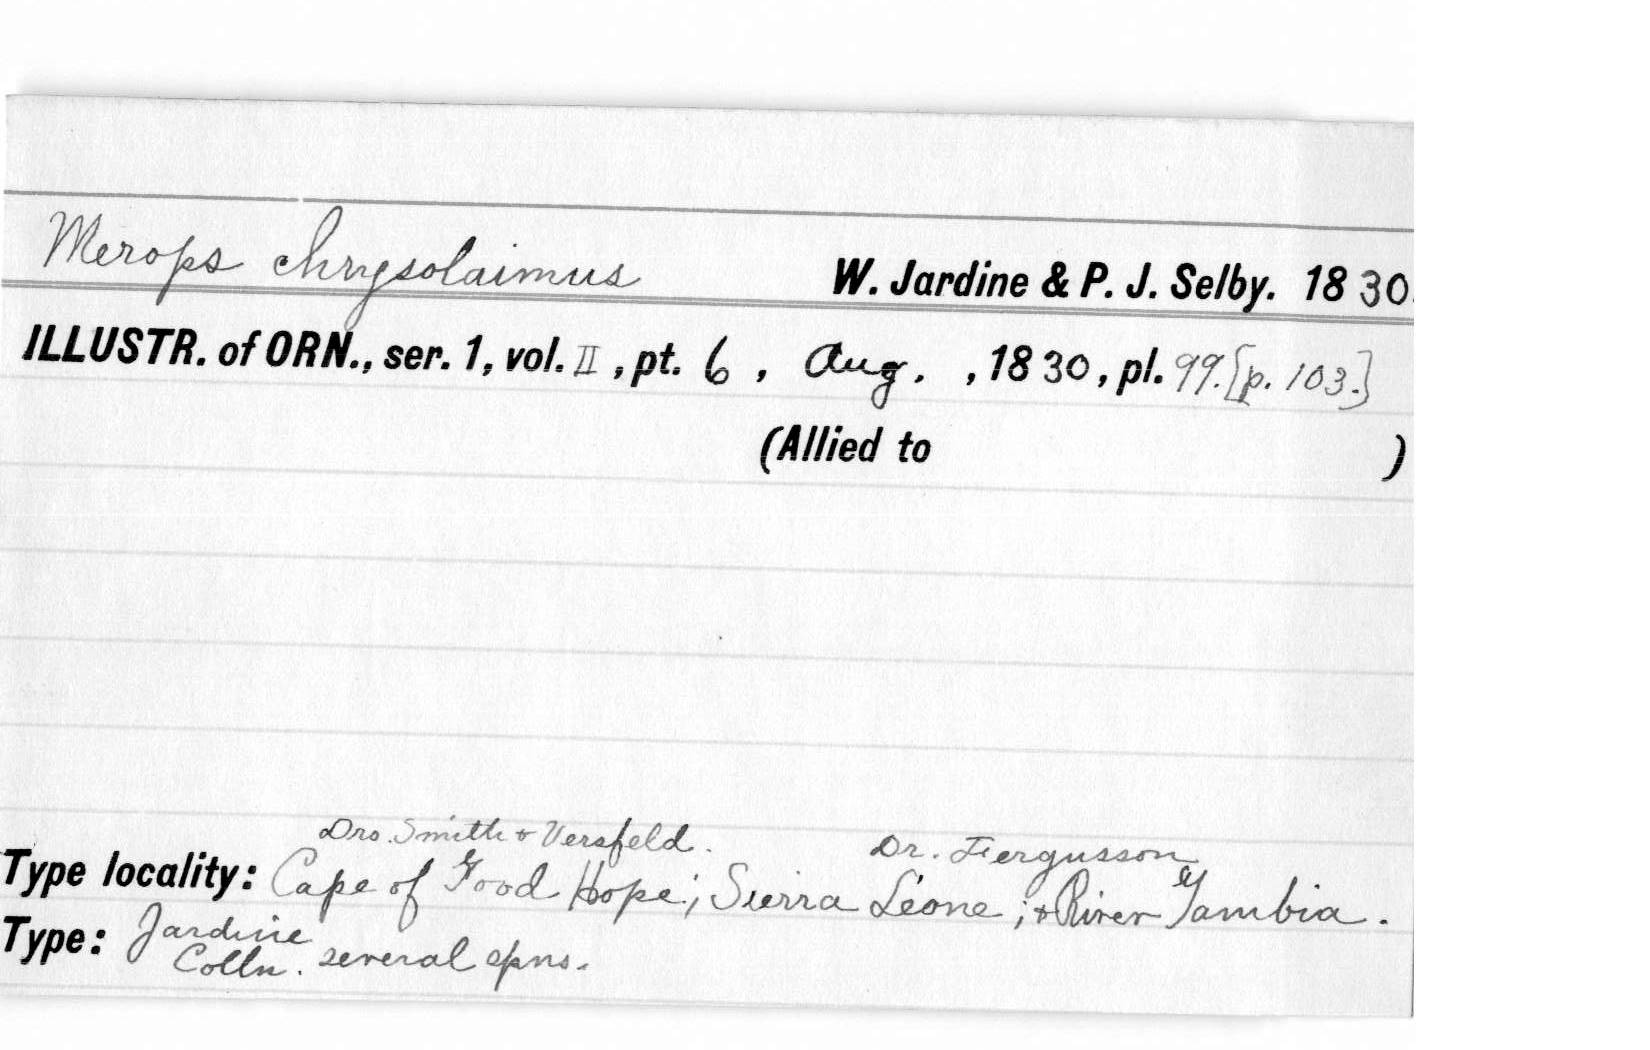 Merops chrysolaimus W. Jardine & P. J. Selby. 1830.
ILLUSTR. of ORN., ser. 1, vol. II, pt. 6, Aug., 1830, pl. 99. [p. 103.]
(Allied to )
Drs. Smith & Versfeld. Dr. Fergusson
Type locality: Cape of Good Hope; Sierra Leone; & River Gambia.
Type: Jardine
Colln. several spns.